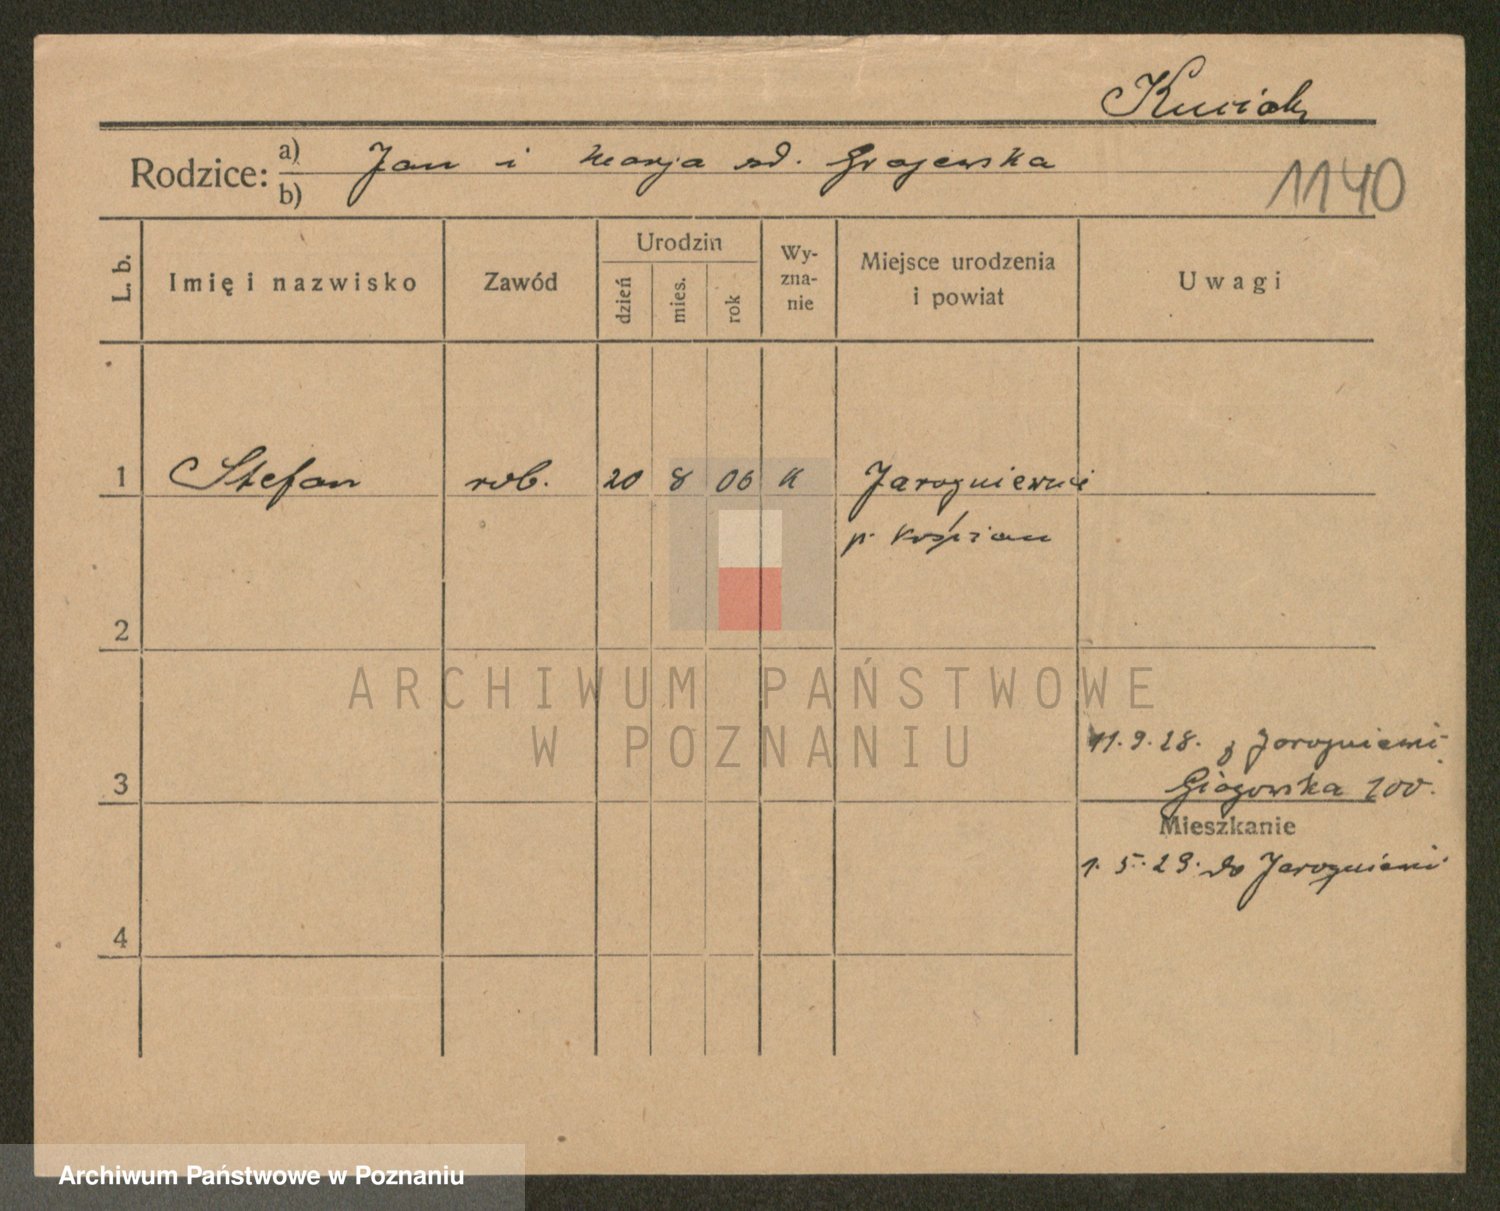 Kuciak
Rodzice: a) b) Jan i Marja zd. Grajewska
1140
L. b. Imię i nazwisko Zawód Urodzin dzień mies. rok Wy-zna-nie Miejsce urodzenia i powiat Uwagi
1 Stefan rob. 20 8 06 K Jarogniewice
p. Kościan
2
ARCHIWUM PAŃSTWOWE
W POZNANIU
11.9.28. z Jarogniewi
3 Głogowska 100.
Mieszkanie
1.5.29. do Jarogniewi
4
Archiwum Państwowe w Poznaniu